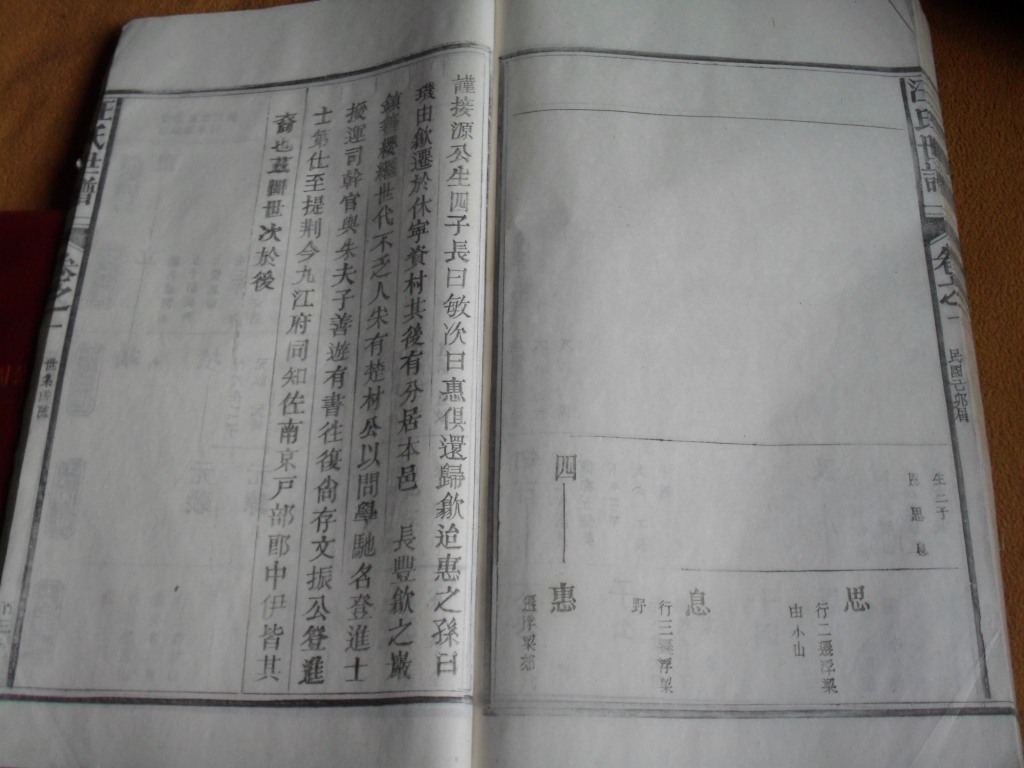 汪氏世譜
卷之一
生二子
思 息
思
行二遷浮梁
由小山
息
行三遷浮梁
野
四 惠
遷浮梁
謹按源公生四子長曰敏次曰惠俱還歸歙迨惠之孫曰
由歙遷於休寧資村其後有分居本邑 長豐歙之巖
鎮 世代不乏人宋有楚村公以問學馳名登進士
授運司幹官與朱夫子善遊有書往復尙存文振公登進
士第仕至提刑今九江府同知佐南京戸部郎中伊皆其
裔也 世次於後
汪氏世譜
卷之一
世系